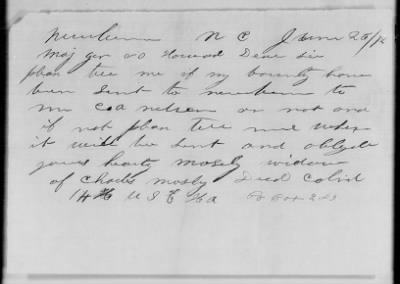 Newbern N C June 25/72
Maj gen o o Howard Dear Sir
plan tell me if my bounty have
been Sent to newbern to
mr C A nelson or not and
if not plan tell me when
it will be sent and oblyde
yours hearty mosely widow
of Charles mosby Dead Colird
14 U S C Ha